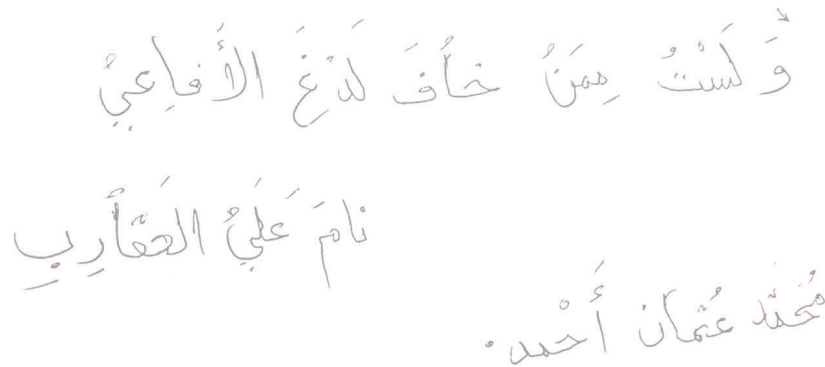 وَ لَسْتُ مِمَنُ خَأفَ لَدْغَ الأَفاِعيُ
نامَ عَليُ العَقأَرِبِ
مُحَمَّد عُثمان أَحْمد.